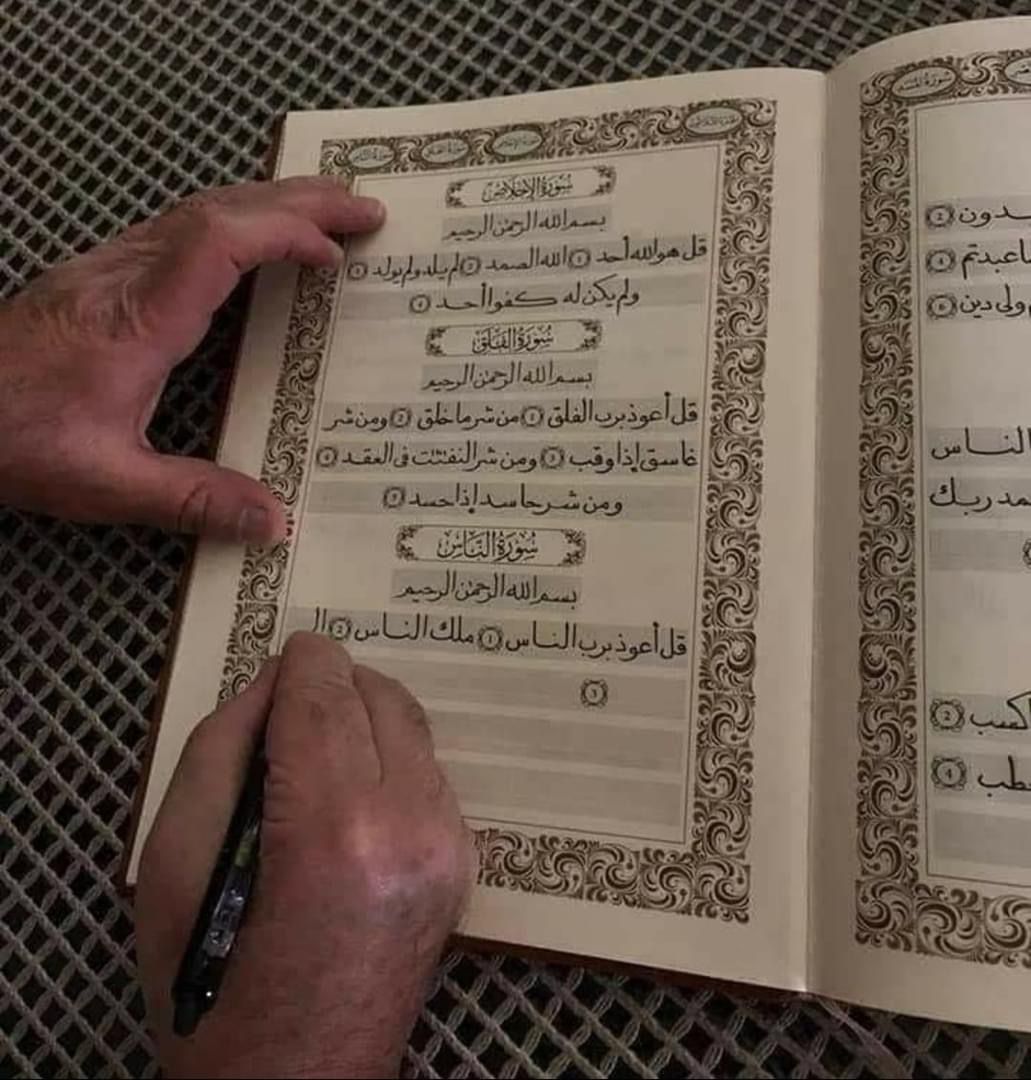 سورة الإخلاص
بسم الله الرحمن الرحيم
قل هو الله أحد 1 الله الصمد 2 لم يلد ولم يولد 3
ولم يكن له كفوا أحد 4
سورة الفلق
بسم الله الرحمن الرحيم
قل أعوذ برب الفلق 1 من شر ما خلق 2 ومن شر
غاسق إذا وقب 3 ومن شر النفثت فى العقد 4
ومن شر حاسد إذا حسد 5
سورة النّاس
بسم الله الرحمن الرحيم
قل أعوذ برب الناس 1 ملك الناس 2 ال
3
2
عبدتم 4
ولى دين 6
الناس
ربك
2
4